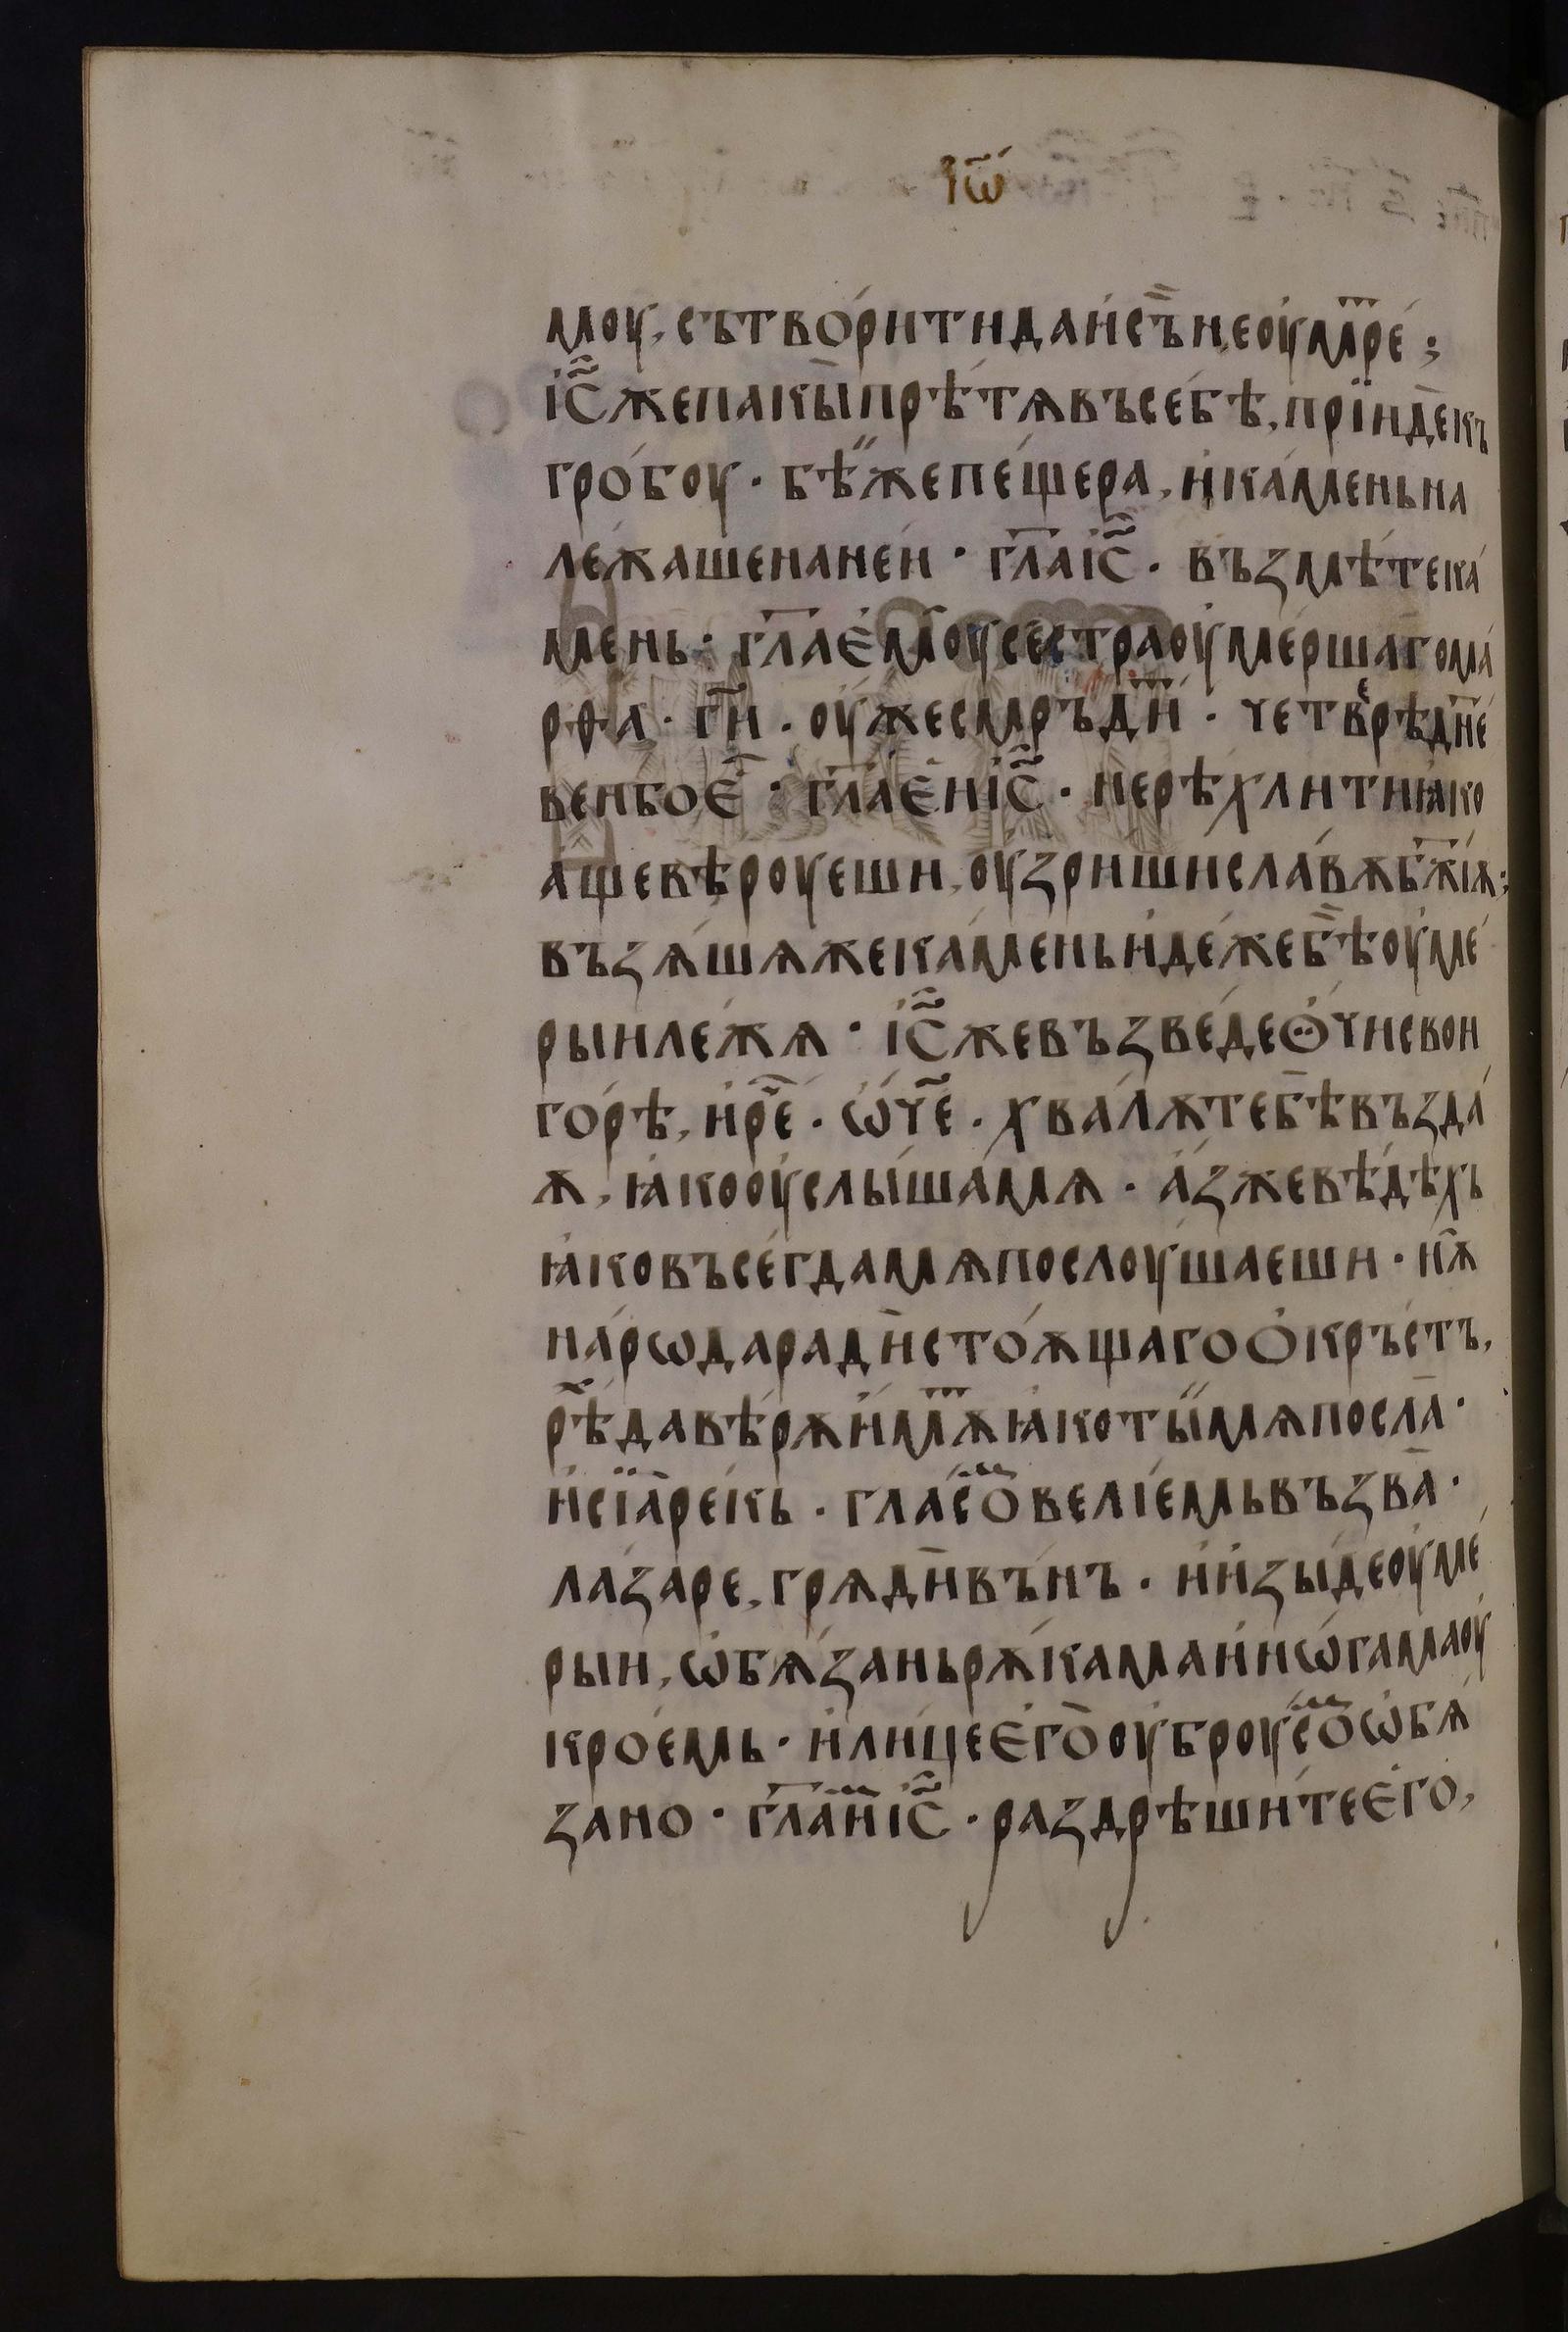 Іѡ҃
моу, сътво́рити да и҆ съ̏ не оу҆мр҃е́ ;
І҆с҃ же пакы̀ прѣ́тѧ въ се́бѣ, прїи́де къ
гро́боу · бѣ̋ же пе́щера, и҆ ка́мень на
лежаше на не́и · гл҃а і҆с҃ · възмѣ́те ка́
мень · гл҃а е҆моу сестра̀ оу҆ме́ршаго ма́
рѳа · гн҃и · оу҆же смръди́ · четвⷷрѣдн҃е́
вен бо е҆̀ · гл҃а е҆́и і҆с҃ · не рѣ́х ли ти ꙗ҆ко
а́ще вѣ́роуеши, оу҆зриши сла́вѫ бж҃їѧ ;
възѧ́шѧ же ка́мень и҆де́же бѣ̏ оу҆ме́
рыи лежѧ · і҆с҃ же възве́де Ѻ҆́чи свои
го́рѣ, и҆ рⷱ҇е · ѡ҆́ч҃е · хвалѫ̀ тебѣ̀ възда́
ѫ, ꙗ҆ко оу҆слы́ша мѧ · а҆́з же вѣ́дѣхъ
ꙗ҆ко въсе́гда мѧ послоу́шаеши · нѫ̀
на́рѡда радѝ сто́ѫщаго О҆́крьстъ,
рѣ́х да вѣ́рѫ и҆́мѫт ꙗ҆ко ты̋ мѧ посла̀ ·
и҆ сїа̀ ре́кь · гла́сом велі́емь възва̀ ·
ла́заре, грѧдѝ вънъ · и҆ и҆зы́де оу҆ме́
рыи, ѡ҆бѧ́зань рѫ́кама и҆ нѡ́гама оу҆
кро́емь · и҆ лице е҆го̀ оу҆броу́сом ѡ҆бѧ́
зано · гл҃а и҆м і҆с҃ · раздрѣши́те е҆го,